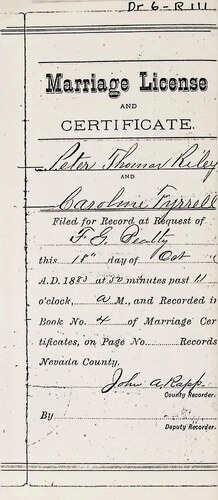 Dr 6-R 111
Marriage License
AND
CERTIFICATE.
Peter Thomas Riley
AND
Caroline
Filed for Record at Request of
F. G. Beatty
this 18" day of Oct
A.D. 1883 at 50 minutes past 11
o'clock, a M., and Recorded in
Book No. 4 of Marriage Cer
tificates, on Page No. Records
Nevada County.
John A. Rapp.
County Recorder.
By
Deputy Recorder.